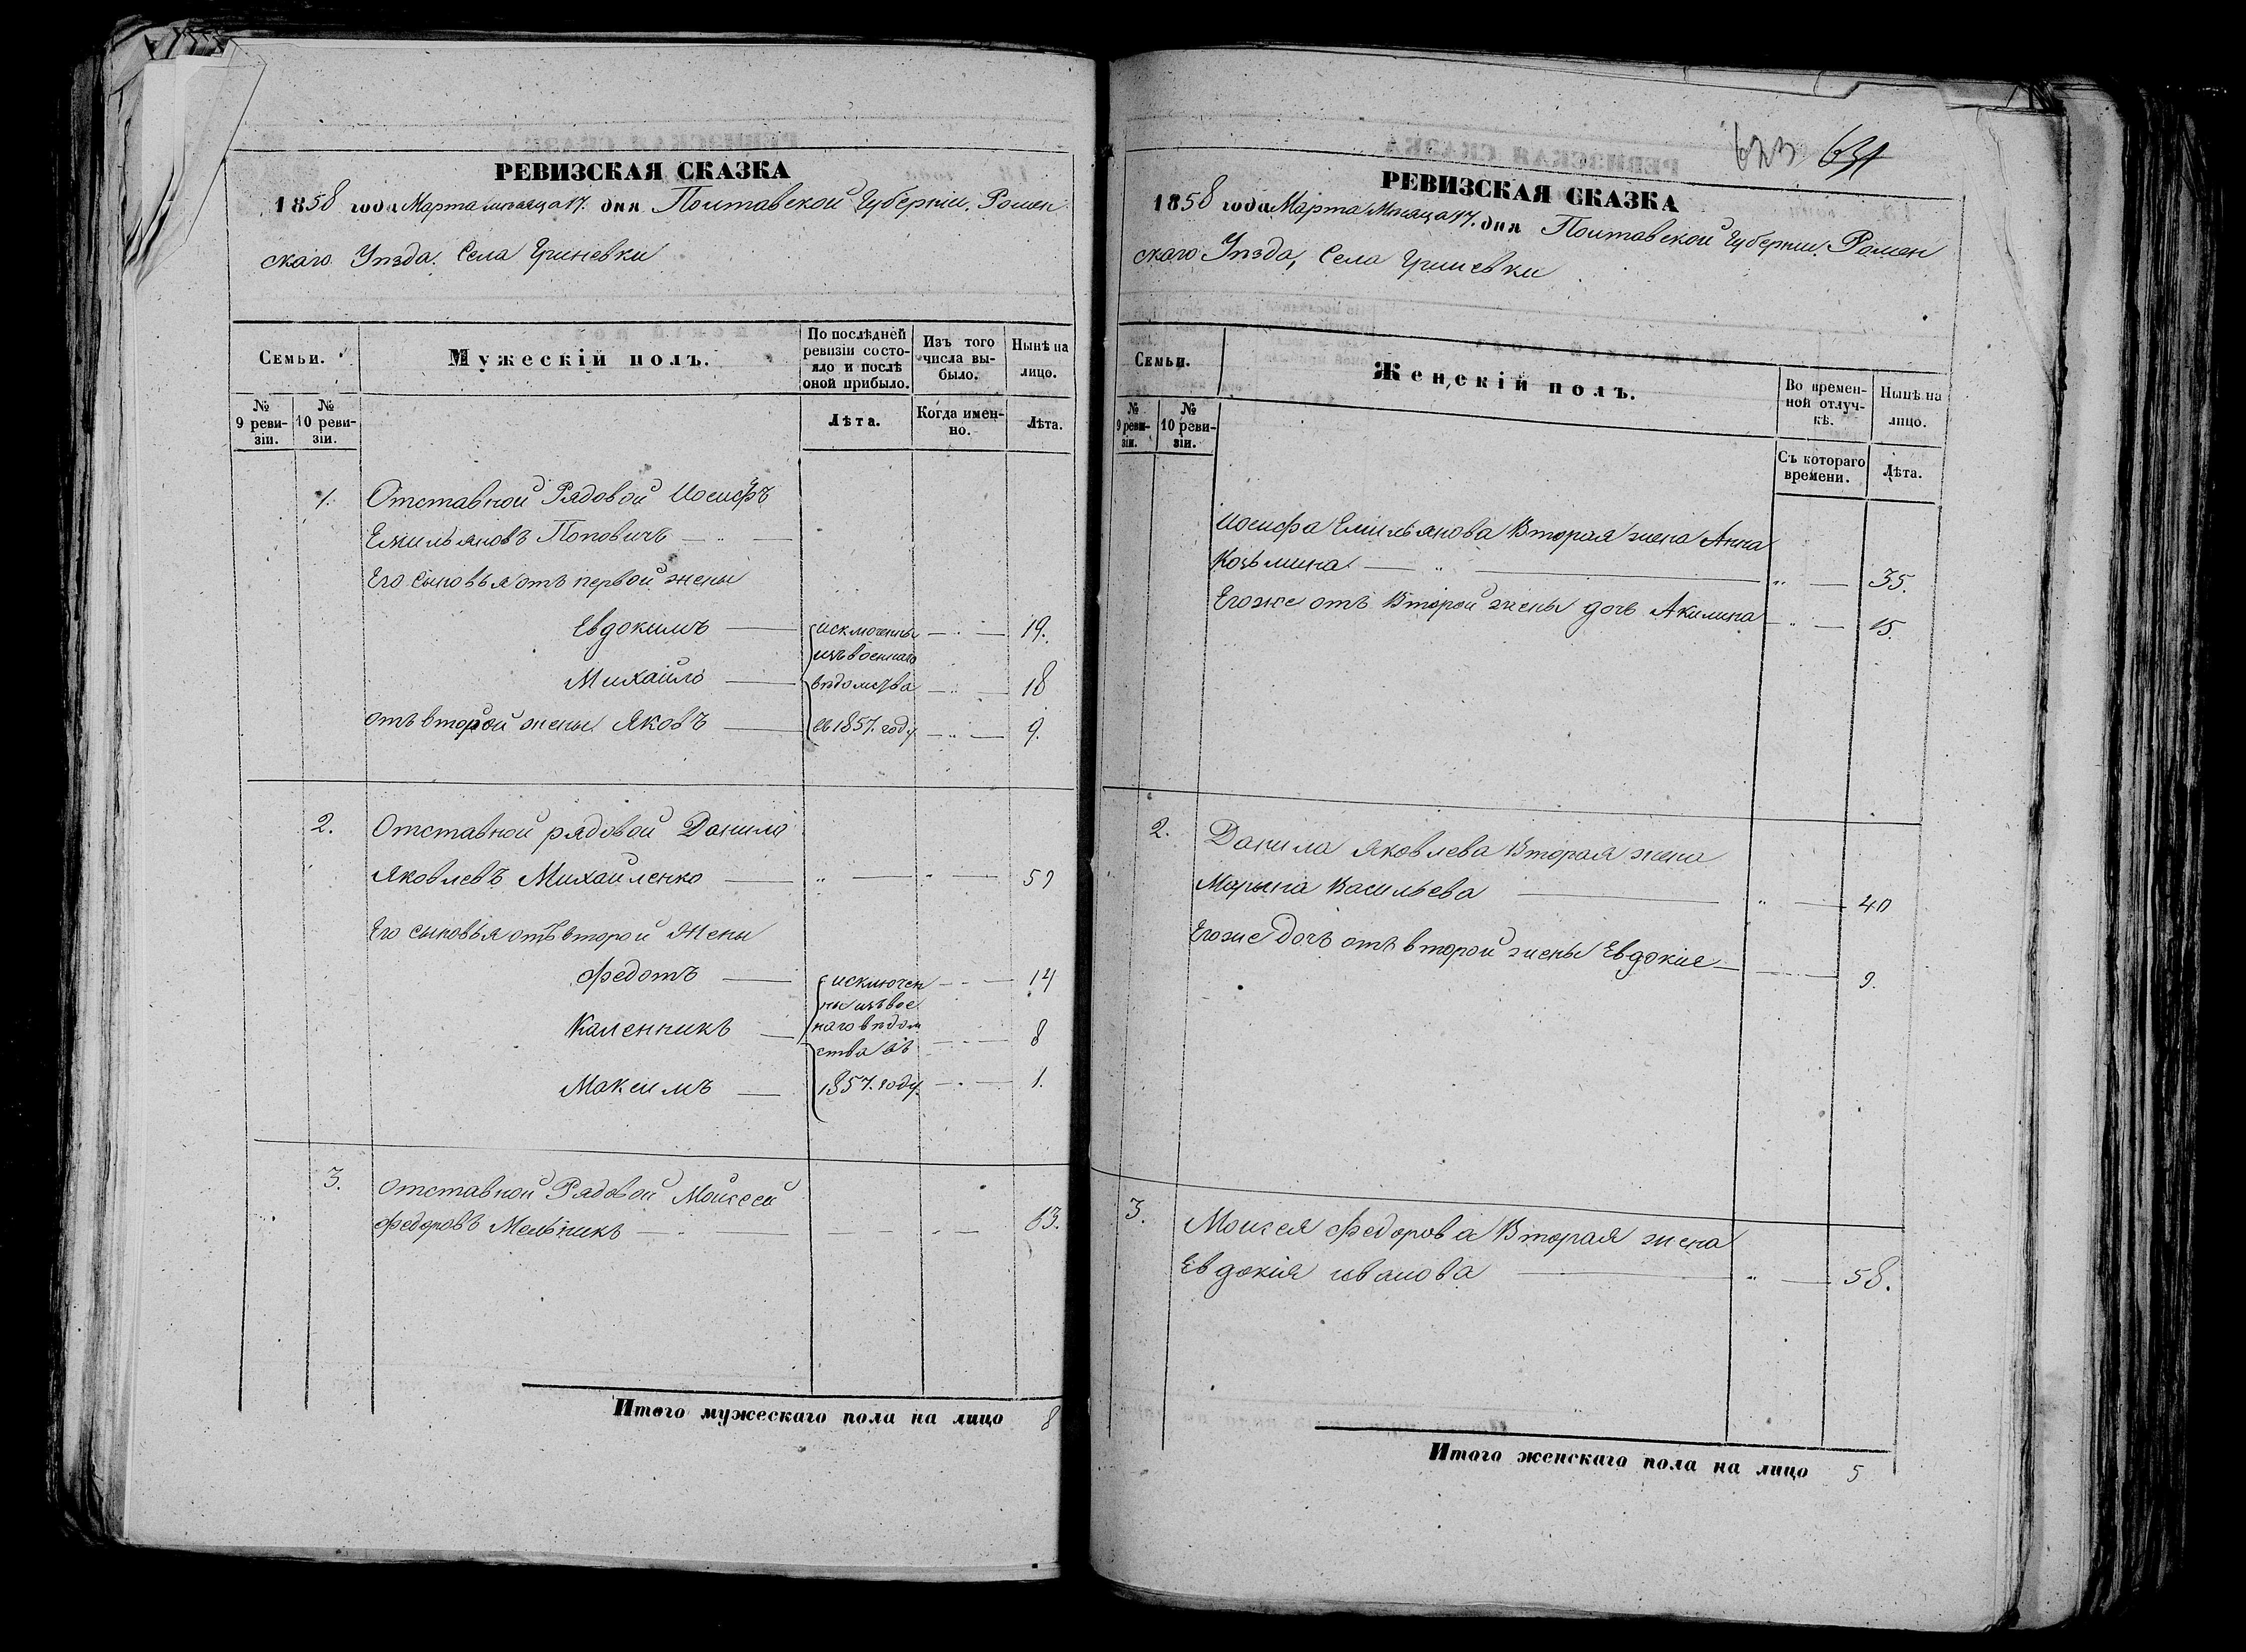 РЕВИЗСКАЯ СКАЗКА
1858 года Марта месяца 17. дня Полтавской Губерніи, Ромен
скаго Уѣзда. Села Гриневки
Семьи.
Мужескій полъ.
По послѣдней
ревизіи состо-
яло и послѣ
оной прибыло.
Изъ того
числа вы-
было.
Нынѣ на
лицо.
№
9 реви-
зіи.
№
10 реви-
зіи.
Лѣта.
Когда имен-
но.
Лѣта.
1. Отставной Рядовой Иосифъ
Емильяновъ Поповичъ
Его сыновья отъ первой жены
Евдокимъ исключены 19.
изъ военнаго
Михайло вѣдомства 18
отъ второй жены Яковъ въ 1857. году 9.
2. Отставной рядовой Данило
Яковлевъ Михайленко
Его сыновья отъ второй жены
Федотъ исключен 14
ны изъ вое
Каленникъ наго вѣдом 8
ства въ
Максимъ 1857. году. 1.
3. Отставной Рядовой Моисей
Федоровъ Мельникъ 63.
Итого мужескаго пола на лицо 8
623 631
РЕВИЗСКАЯ СКАЗКА
1858 года Марта Месяца 17. дня Полтавской Губерніи. Ромен
скаго Уѣзда, Села Гриневки
Семьи.
Женскій полъ.
Во времен-
ной отлуч-
кѣ.
Нынѣ на
лицо.
№
9 реви-
зіи.
№
10 реви-
зіи.
Съ котораго
времени.
Лѣта.
Иосифа Емильянова Вторая жена Анна
Козьмина 35.
Его же отъ Второй жены дочь Акилина 15.
2. Данила Яковлева Вторая жена
Марьина Васильева 40
Его же дочь отъ второй жены Евдокия 9.
3. Моисея Федорова Вторая жена
Евдокія Иванова 58.
Итого женскаго пола на лицо 5